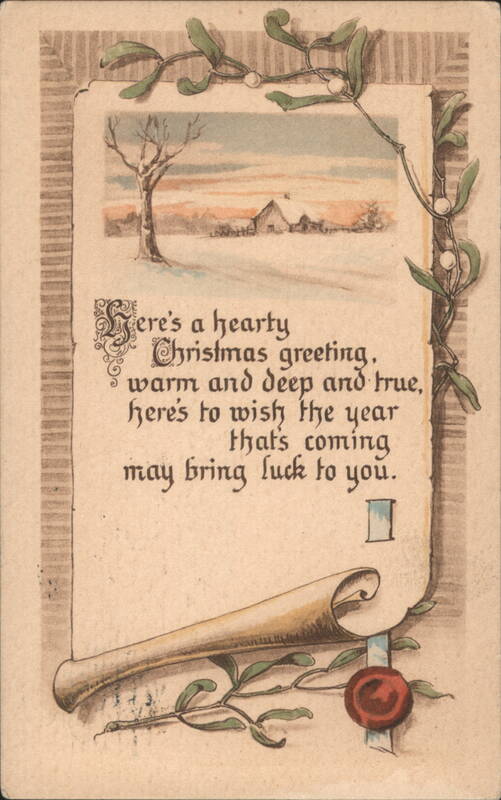 Here's a hearty
Christmas greeting,
warm and deep and true,
here's to wish the year
that's coming
may bring luck to you.